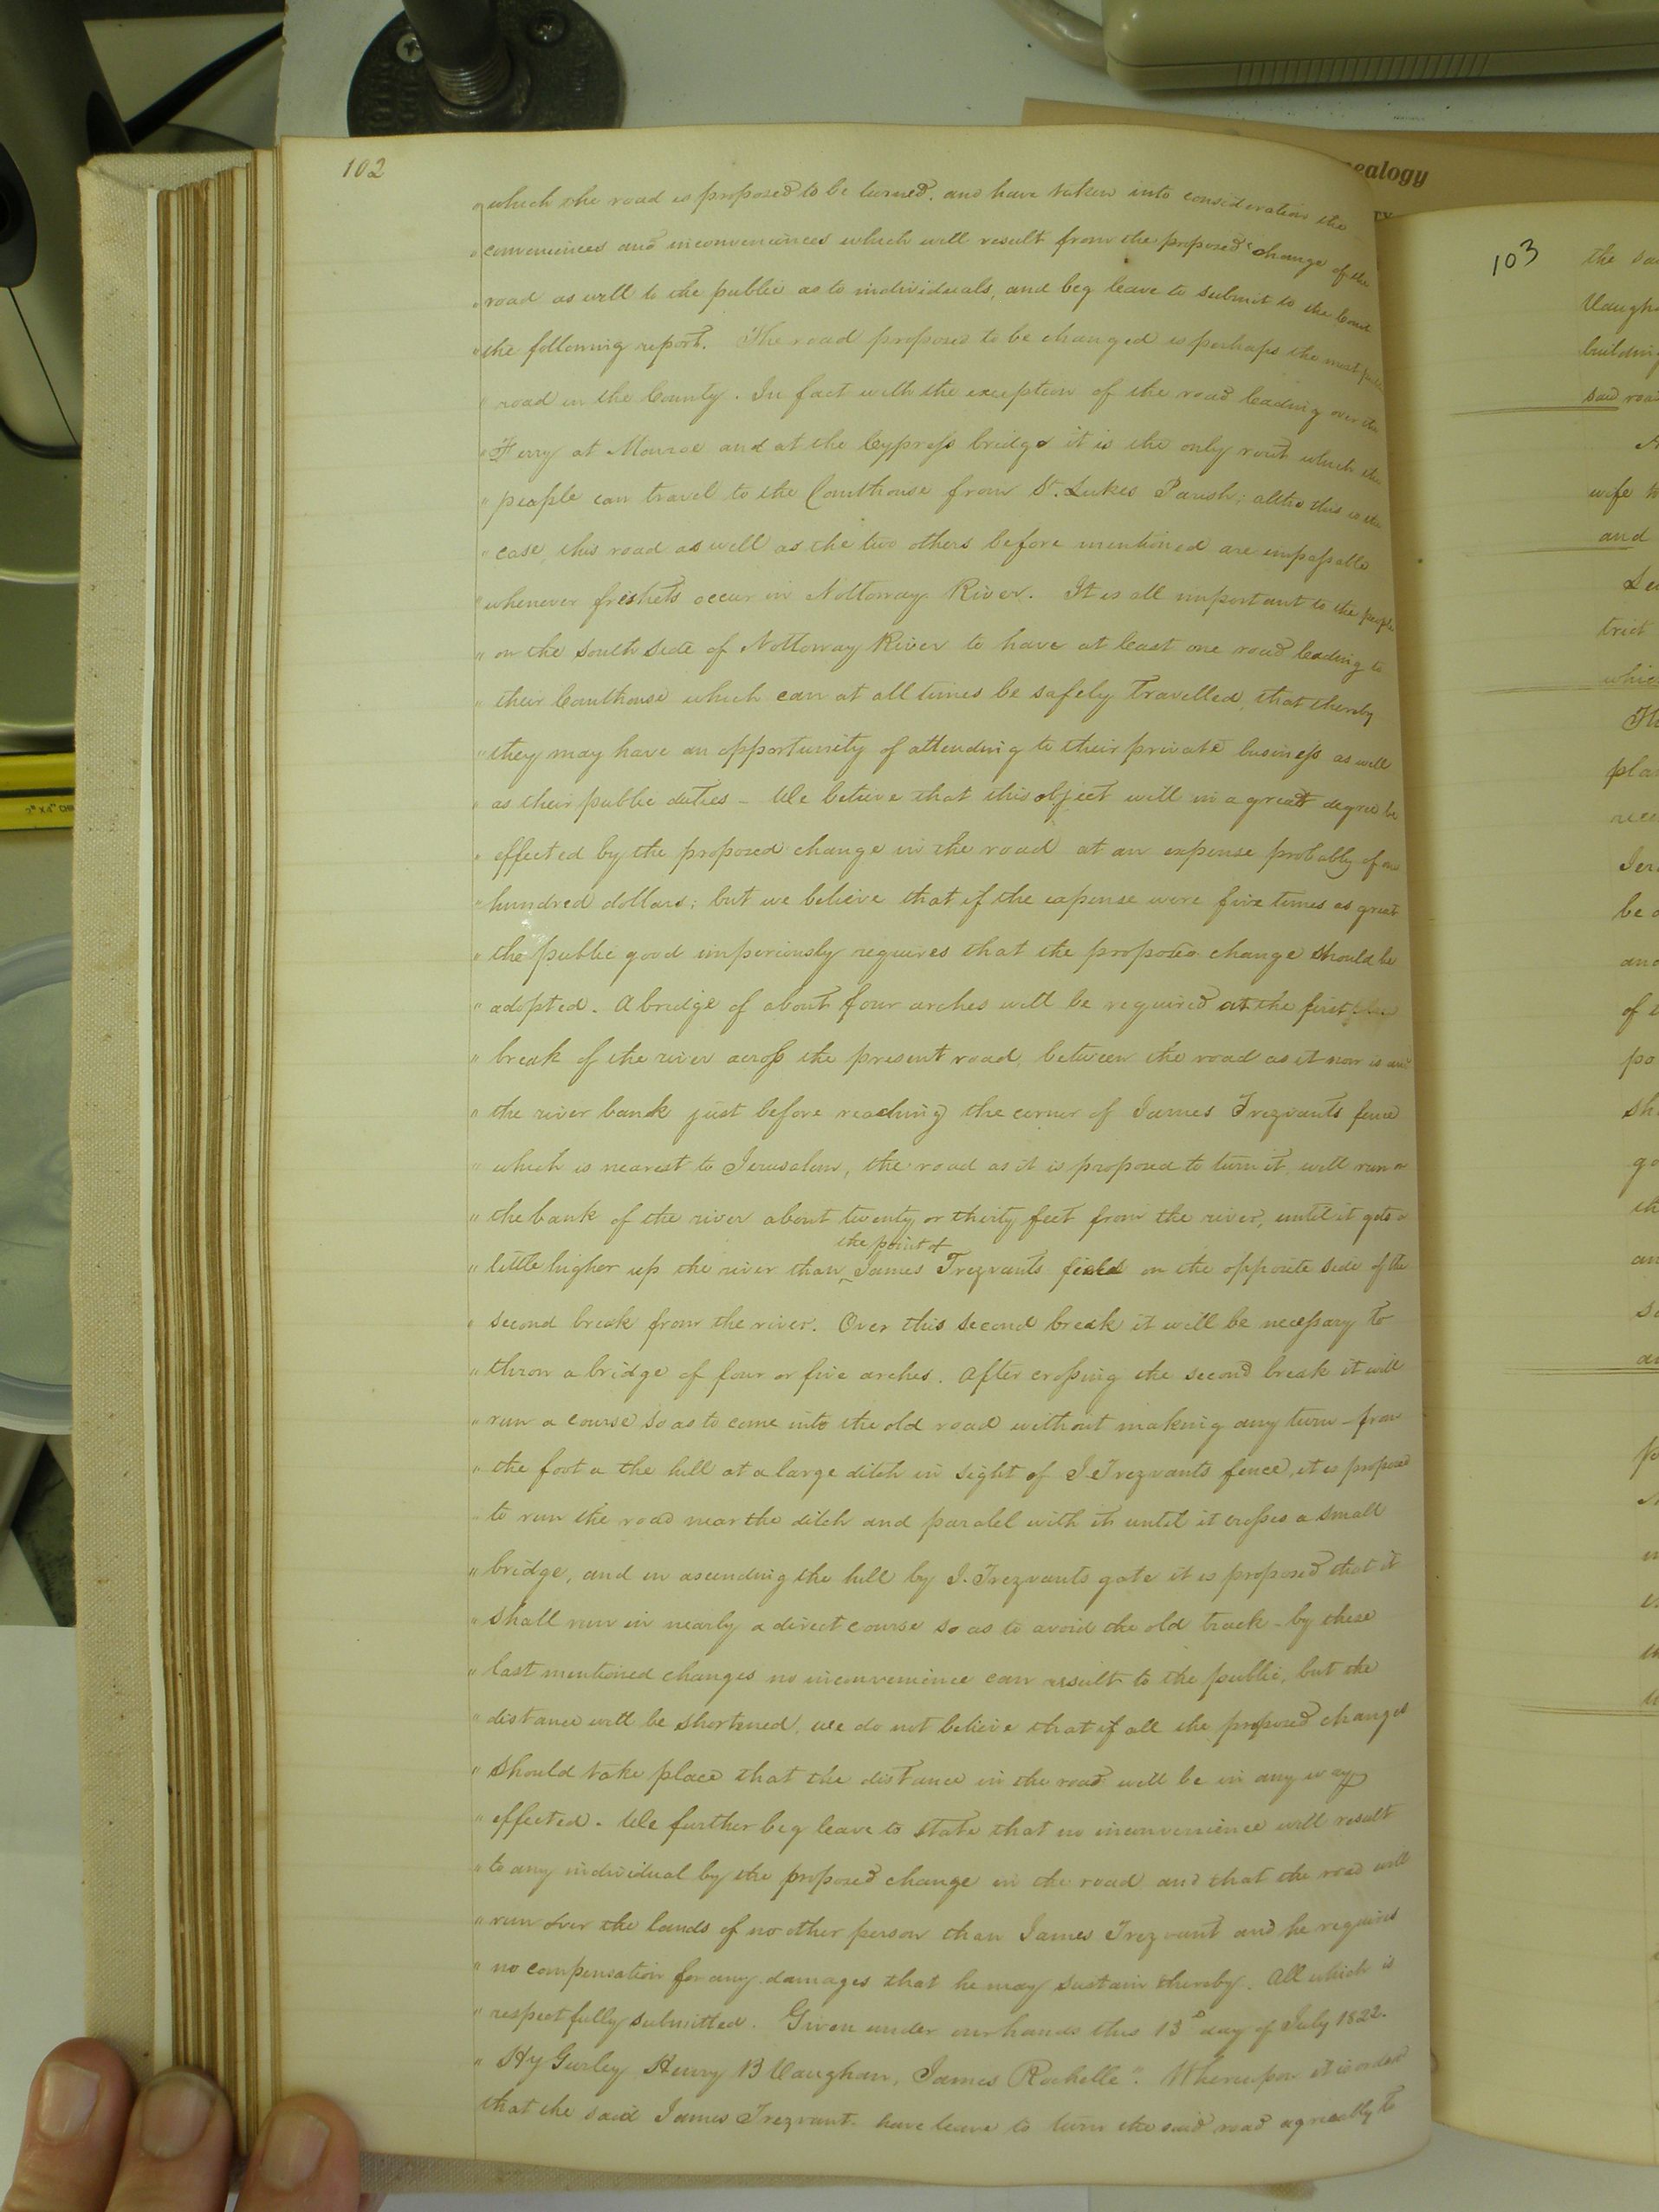 102
" which the road is proposed to be turned. and have taken into consideration the
" conveniences and inconveniences which will result from the proposed change of the
" road as well to the public as to individuals, and beg leave to submit to the Court
" the following report. The road proposed to be changed is perhaps the most public
" road in the County. In fact with the exception of the road leading over the
" Ferry at Monroe and at the Cypress bridge it is the only rout which the
" people can travel to the Courthouse from St. Lukes Parish; altho this is the
" case, this road as well as the two others before mentioned are impassable
" whenever freshets occur in Nottoway River. It is all important to the people
" on the south side of Nottoway River to have at least one road leading to
" their Courthouse which can at all times be safely travelled, that thereby
" they may have an opportunity of attending to their private business as well
" as their public duties - We believe that this object will in a great degree be
" effected by the proposed change in the road at an expense probably of one
" hundred dollars; but we believe that if the expense were five times as great
" the public good imperiously requires that the proposed change should be
" adopted. A bridge of about four arches will be required at the first
" break of the river across the present road, between the road as it now is and
" the river bank just before reaching the corner of James Trezvants fence
" which is nearest to Jerusalem, the road as it is proposed to turn it, will run on
" the bank of the river about twenty or thirty feet from the river, until it gets a
the point of
" little higher up the river than James Trezvants field on the opposite side of the
" second break from the river. Over this second break it will be necessary to
" throw a bridge of four or five arches. After crossing the second break it will
" run a course so as to come into the old road without making any turn - from
" the foot a the hill at a large ditch in sight of J. Trezvants fence, it is proposed
" to run the road near the ditch and paralel with it until it crosses a small
" bridge, and in ascending the hill by J. Trezvants gate it is proposed that it
" shall run in nearly a direct course so as to avoid the old track - by these
" last mentioned changes no inconvenience can result to the public, but the
" distance will be shortened, we do not believe that if all the proposed changes
" should take place that the distance in the road will be in any way
" effected. We further beg leave to state that no inconvenience will result
" to any individual by the proposed change in the road and that the road will
" run over the lands of no other person than James Trezvant and he requires
" no compensation for any damages that he may sustain thereby. All which is
" respectfully submitted. Given under our hands this 13th day of July 1822.
" Hy Gurley, Henry B Vaughan, James Rochelle". Whereupon it is ordered
that the said James Trezvant have leave to turn the said road agreeably to
ealogy
103
the sa
Vaugh
building
said road
wife
and
trict
whic
pla
be
and
of
po
sh